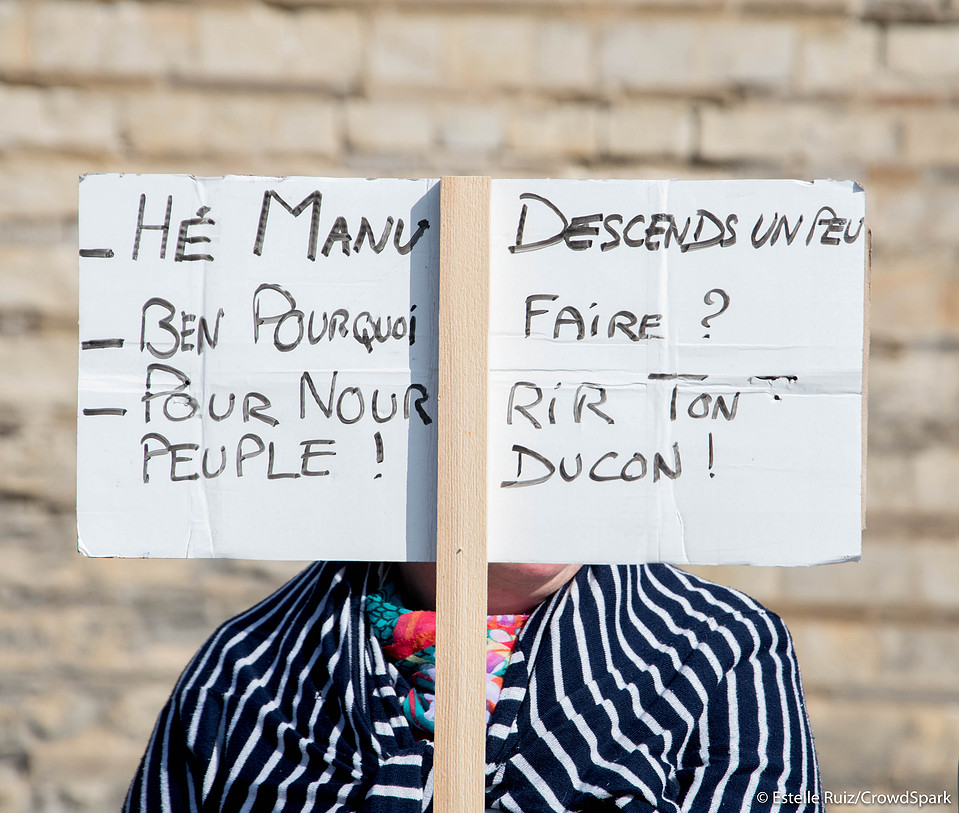 - HÉ MANU DESCENDS UN PEU
- BEN POURQUOI FAIRE ?
- POUR NOURRIR TON
PEUPLE ! DUCON !
© Estelle Ruiz/CrowdSpark